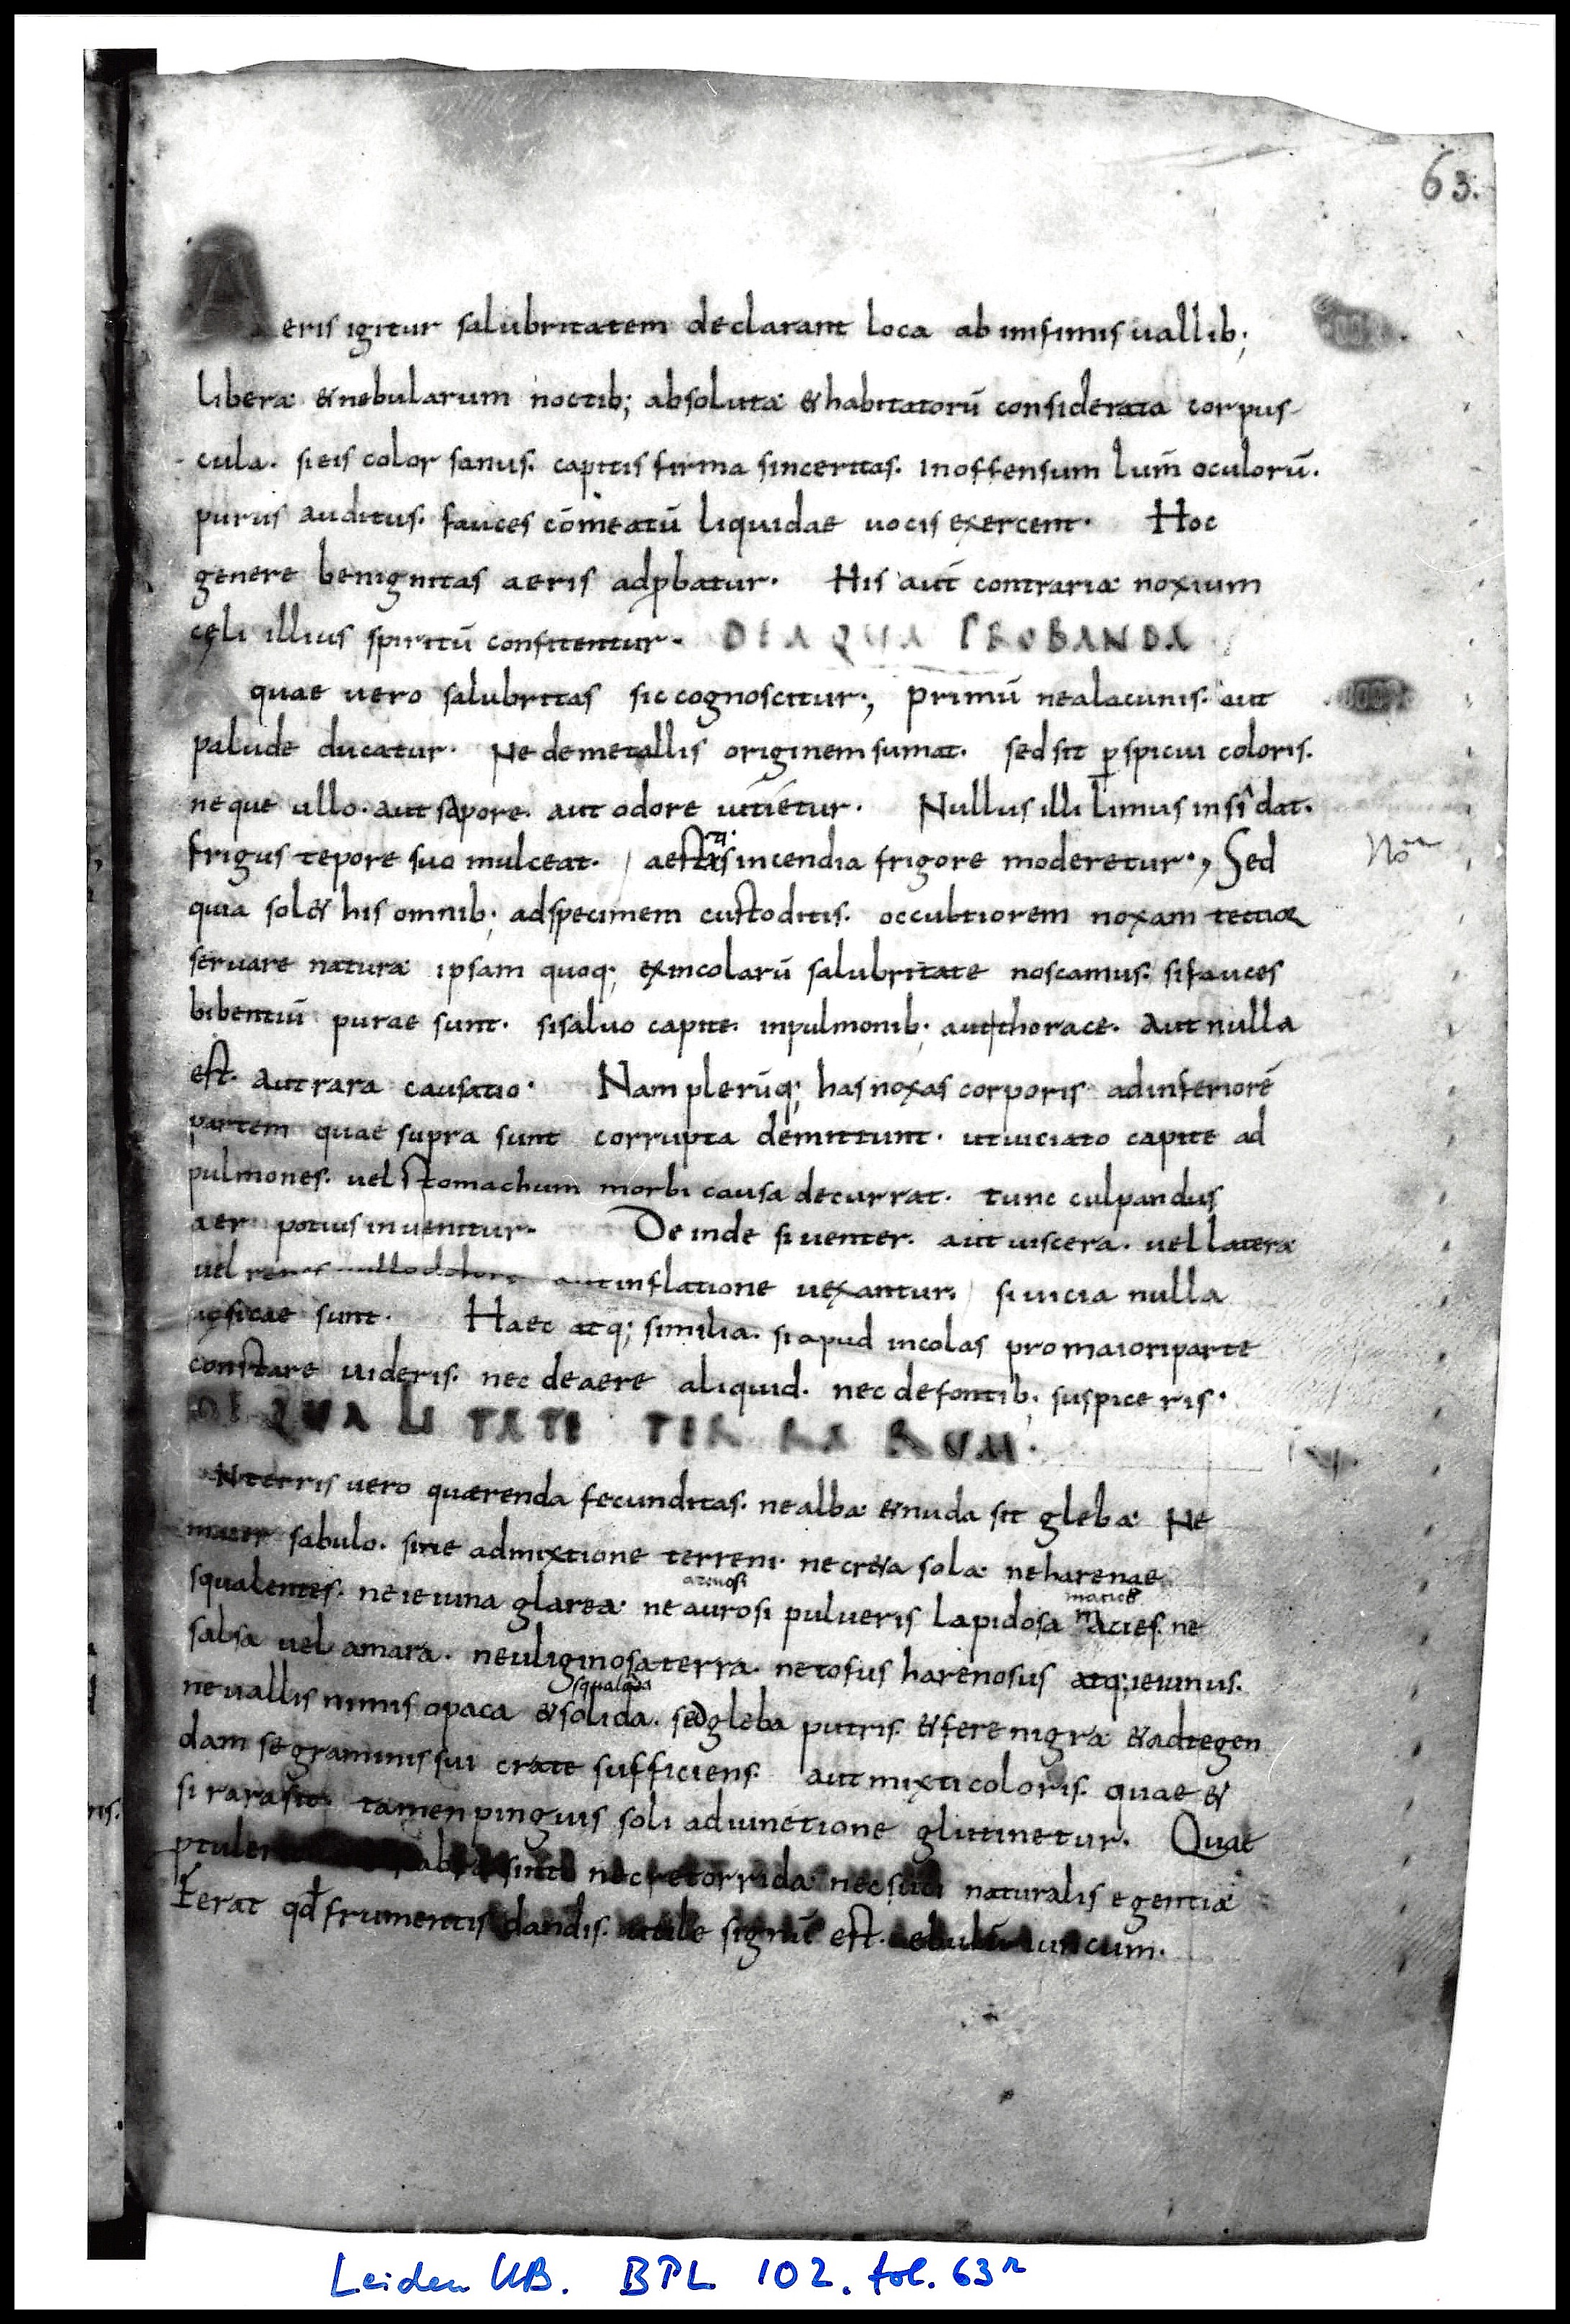 63.
Aeris igitur salubritatem declarant loca ab infimis uallib;
libera & nebularum noctib; absoluta & habitatorū considerata corpus
cula. si eis color sanus. capitis firma sinceritas. inoffensum lum̄ oculorū.
purus auditus. fauces cōmeatū liquidae uocis exercent. Hoc
genere benignitas aeris adꝓbatur. His aut̄ contraria noxium
cęli illius spiritū confitentur. DE AQUA PROBANDA
quae uero salubritas sic cognoscitur; primū ne a lacunis. aut
palude ducatur. Ne de metallis originem sumat. sed sit ꝑspicui coloris.
neque ullo. aut sapore. aut odore uitietur. Nullus illi limus insidat.
frigus tepore suo mulceat. aestatis incendia frigore moderetur., Sed
quia sol& his omnib; ad specimem custoditis. occultiorem noxam
seruare natura ipsam quoq; ex incolarū salubritate noscamus. si fauces
bibentiū purae sunt. si saluo capite. in pulmonib; aut thorace. aut nulla
est. aut rara causatio. Nam plerūq; has noxas corporis ad inferiorē
partem quae supra sunt corrupta demittunt. ut uiciato capite ad
pulmones. uel stomachum morbi causa decurrat. tunc culpandus
aer potius inuenitur. Deinde si uenter. aut uiscera. uel latera
uel renes nullo dolore aut inflatione uexantur. si uicia nulla
sunt. Haec atq; similia. si apud incolas pro maiori parte
constare uideris. nec de aere aliquid. nec de fontib; suspiceris.
DE QUALITATE TERRARUM.
N terris uero quaerenda fecunditas. ne alba & nuda sit gleba Ne
macer sabulo. sine admixtione terreni. ne cr&a sola ne harenae
squalentes. ne ieiuna glarea ne aurosi pulueris lapidosa macies. ne
arenosi
macies
salsa uel amara. ne uliginosa terra. ne tofus harenosus atq; ieiunus.
ne uallis nimis opaca & solida. sed gleba putris. & fere nigra & ad tegen
squalida
dam se graminis sui crate sufficiens. aut mixti coloris. quae &
si rara sit. tamen pinguis soli adiunctione glutinetur. Quae
sint nec retorrida nec naturalis egentia
Ferat qđ frumentis dandis. utile signū est.
Leiden UB. BPL 102. fol. 63r